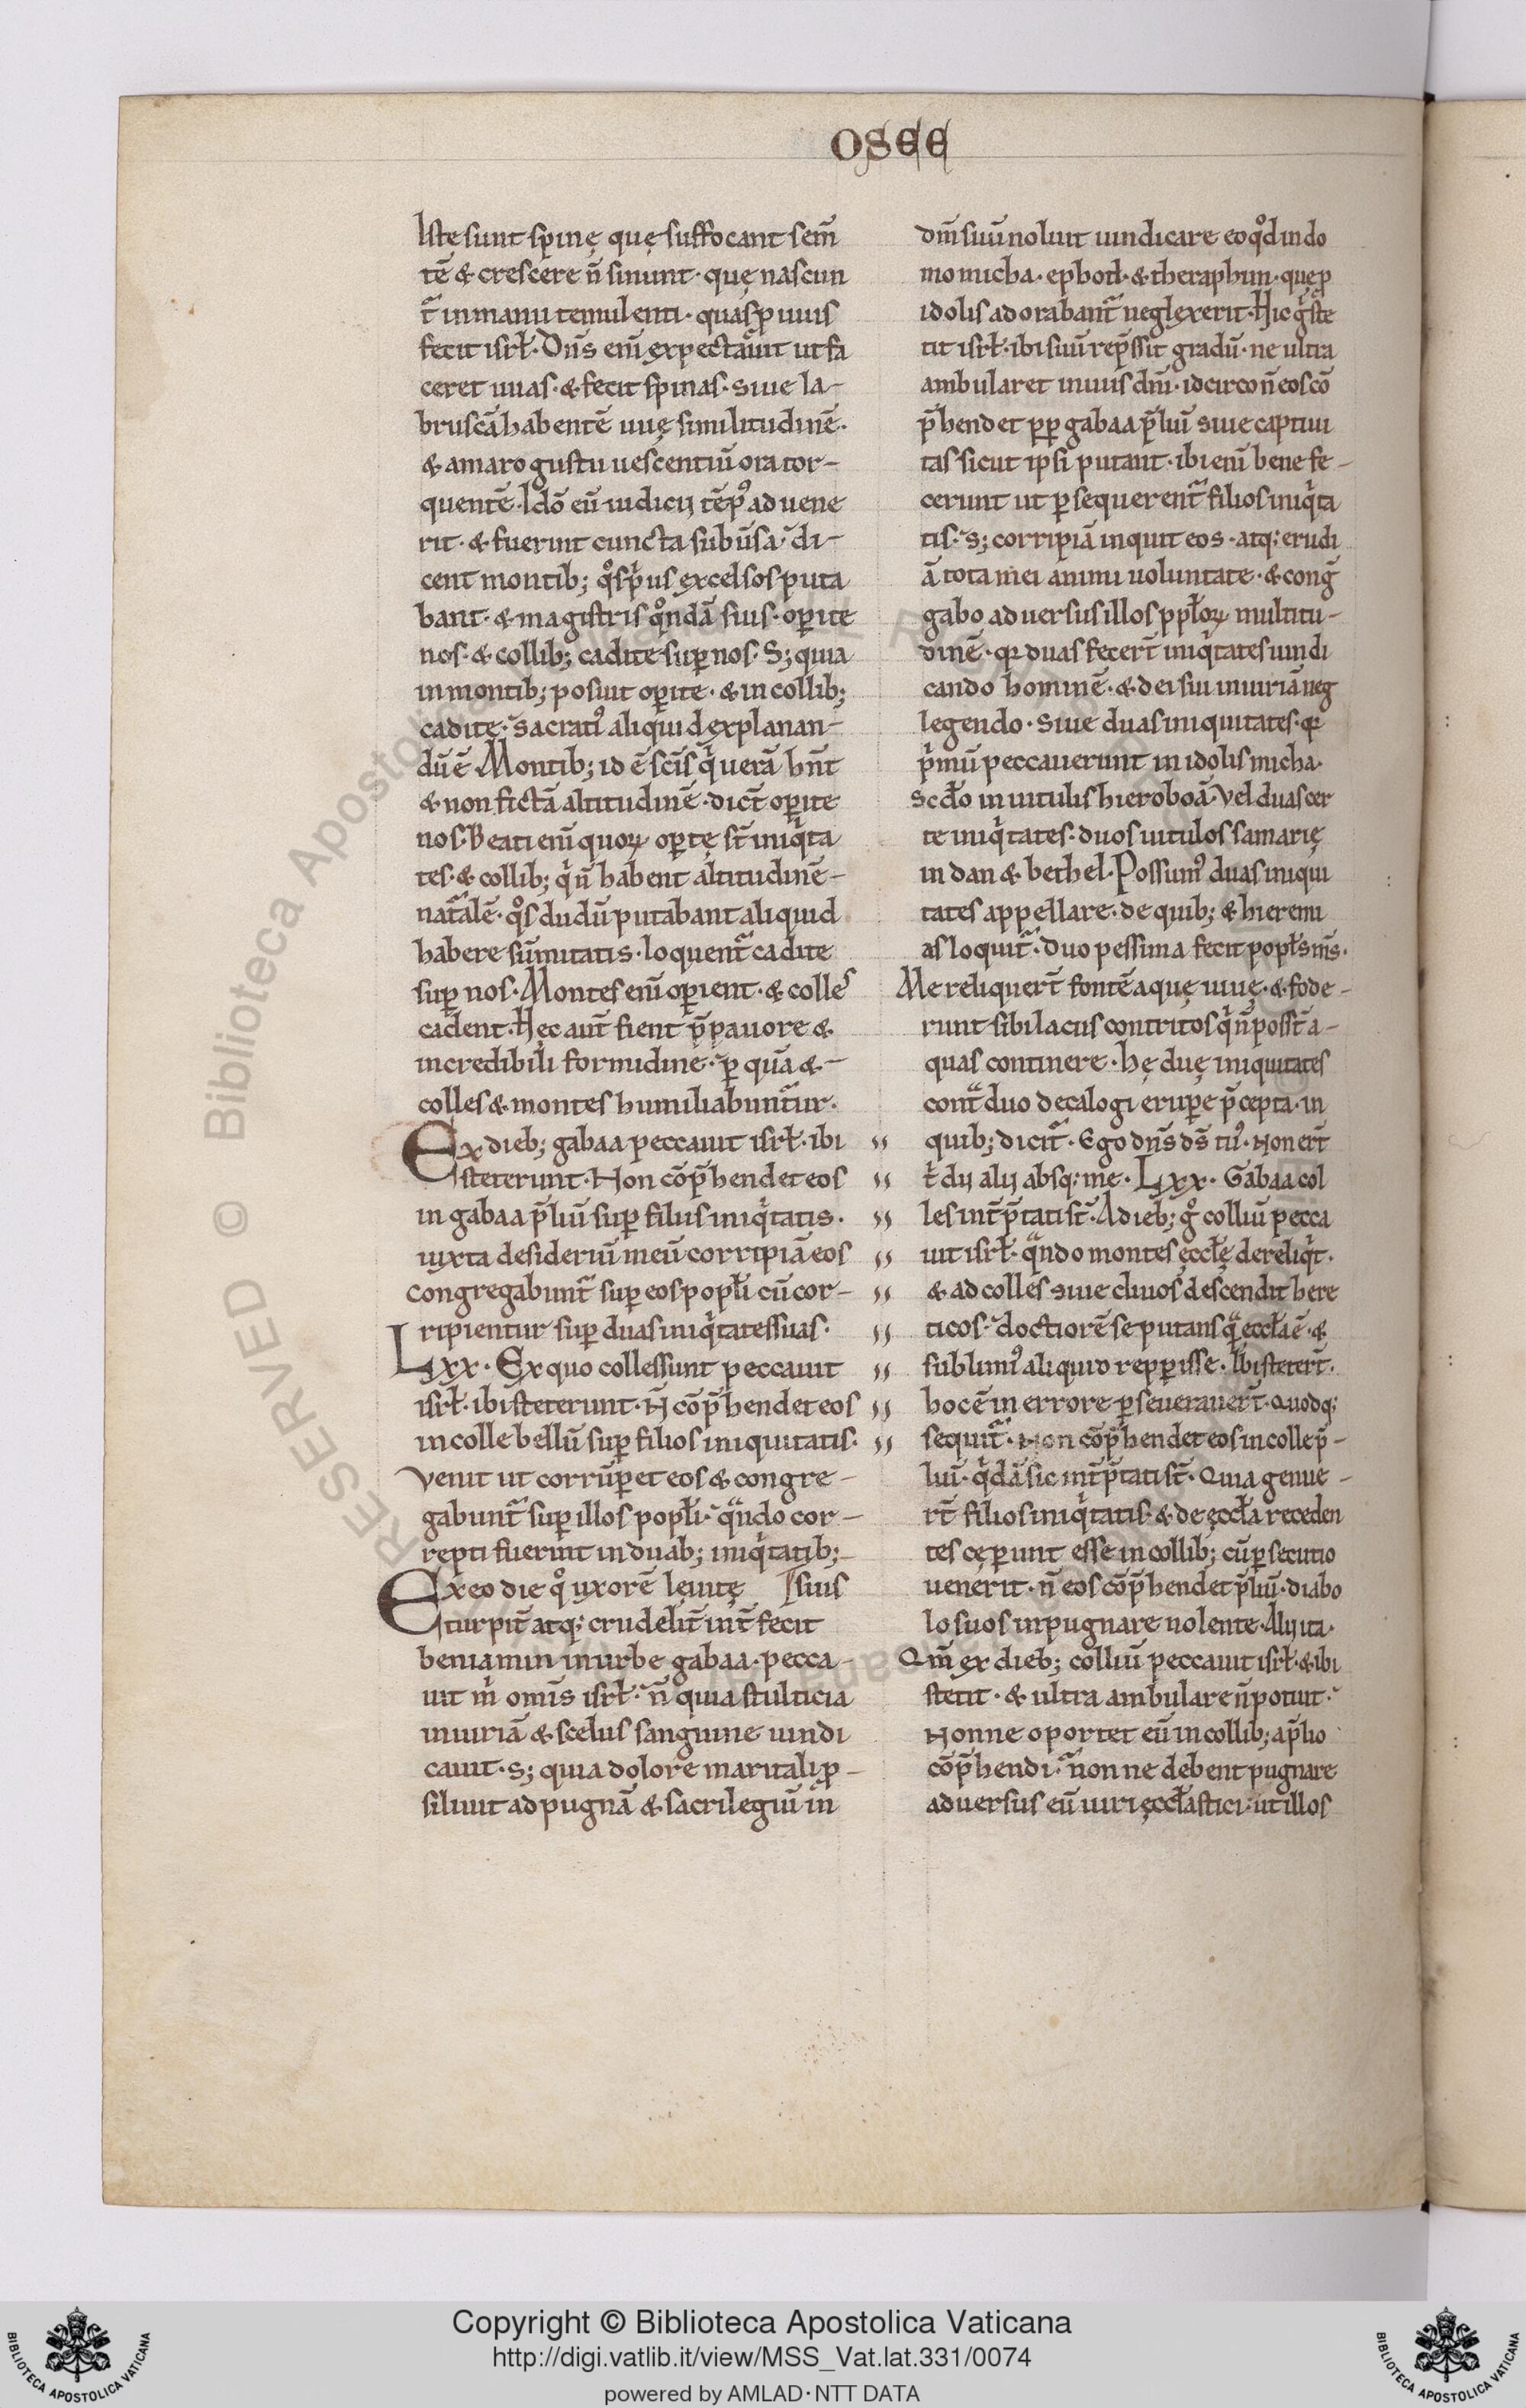 OSEE
Iste sunt spinę quę suffocant sem̄
tē & crescere n̄ sinunt· quę nascun
t̄ in manu temulenti· quas ꝓ uuis
fecit isrł· Dn̄s eni̅ expectauit ut fa
ceret uuas· & fecit spinas· siue la-
bruscā habentē uuę similitudinē·
& amaro gustu uescentiū ora tor-
quentē· Idō cū iudicij tēpꝰ aduene
rit· & fuerint cuncta subūsa· di-
cent montib; qͦs pͥus excelsos puta
bant· & magistris qͦndā suis· oꝑite
nos· & collib; cadite suꝑ nos· S; quia
in montib; posuit oꝑite· & in collib;
cadite· sacratiꝰ aliquid explanan-
dū ē Montib; id ē sc̄is qͥ uerā hn̄t
& non fictā altitudinē· dic̄t oꝑite
nos· Beati eni̅ quoꝝ oꝑtę st̄ iniqͥta
tes· & collib; qͥ n̄ habent altitudinē-
nat̄alē· qͦs dudū putabant aliquid
habere sūmitatis· loquent̄ cadite
suꝑ nos· Montes eni̅ oꝑient· & colles
cadent· Hęc aut̄ fient p̄ pauore &
incredibili formidine· ꝑ quā & -
colles & montes humiliabunt̄ur·
Ex dieb; gabaa peccauit isrł· ibi
steterunt· Non cōp̄hendet eos
in gabaa p̄liū suꝑ filius iniqͥtatis·
iuxta desideriū meū corripiā eos
congregabunt̄ suꝑ eos popłi cū cor-
ripientur suꝑ duas iniqͥtates suas·
Lxx· Ex quo colles sunt peccauit
isrł· ibi steterunt· N̄ cōp̄hendet eos
in colle bellū suꝑ filios iniquitatis·
venit ut corrūꝑet eos & congre-
gabunt̄ suꝑ illos popłi· qͣndo cor-
repti fuerint in duab; iniqͥtatib;-
Ex eo die qͦ uxorē leuitę
turpit̄ atq; crudelit̄ int̄fecit
beniamin in urbe gabaa· pecca-
uit m̄ omīs isrł· n̄ quia stulticia
iniuriā & scelus sanguine uindi
cauit· s; quia dolore maritali ꝓ-
siliuit ad pugnā & sacrilegiū in
dm̄ suū noluit uindicare eo qͦd in do
mo micha· ephod· & theraphim· quę ꝓ
idolis adorabant̄ neglexerit· Hic gͦ ste
tit isrł· ibi suū rep̄ssit gradū· ne ultra
ambularet in uiis dm̄i· idcirco n̄ eos cō
p̄hendet ꝑꝑ gabaa p̄liu̅ siue captiui
tas sicut ipsi putant· ibi eni̅ bene fe-
cerunt ut ꝑsequerent̄ filios iniqͥta
tis· S; corripiā inquit eos· atq; erudi
ā tota mei animi uoluntate· & cong̅
gabo aduersus illos ppłoꝝ multitu-
dinē· qꝛ duas fecer̄t iniqͥtates uindi
cando hominē· & dei sui iniuriā neg
legendo· siue duas iniquitates· qꝛ
pͥmū peccauerunt in idolis micha·
Scdo in uitulis hieroboā· vel duas cer
te iniqͥtates· duos uitulos samarię
in dan & bethel· Possumꝰ duas iniqui
tates appellare· de quib; & hieremi
as loquit̄· Duo pessima fecit popłs m̄s·
Me reliquer̄t fontē aquę uiuę· & fode-
runt sibi lacus contritos qͥ n̄ poss̄t a-
quas continere· hę duę iniquitates
cont̄ duo decalogi erupe p̄cepta· in
quib; dicit̄· Ego dn̄s ds̄ tuꝰ· Non er̄t
tͥ dij alij absq; me· Lxx· Gabaa col
les int̄p̄tati st̄· A dieb; gͦ colliū pecca
uit isrł· qͣndo montes ęccłę dereliqͥt·
& ad colles siue cliuos descendit here
ticos· doctiorē se putans qͣ eccła ē· &
sublimiꝰ aliquid repperisse· Ibi steter̄t·
hoc ē in errore ꝑseuerauer̄t· Quodq;
sequit̄· Non cōp̄hendet eos in colle p̄-
liu̅· qͥdā sic int̄p̄tati st̄· Quia genue-
r̄t filios iniqͥtatis· & de ęccła receden
tes cęꝑunt esse in collib; cū ꝑsecutio
uenerit· n̄ eos cōp̄hendet p̄liū· diabo
lo suos inpugnare nolente· Alij ita·
Qm̄ ex dieb; colliū peccauit isrł· & ibi
stetit· & ultra ambulare n̄ potuit·
Nonne oportet eū in collib; a p̄lio
cōp̄hendi· nonne debent pugnare
aduersus eū uiri ęccłastici· ut illos
RESERVED © Biblioteca Apostolica Vaticana
Copyright © Biblioteca Apostolica Vaticana
http://digi.vatlib.it/view/MSS_Vat.lat.331/0074
powered by AMLAD·NTT DATA
BIBLIOTECA APOSTOLICA VATICANA
BIBLIOTECA APOSTOLICA VATICANA